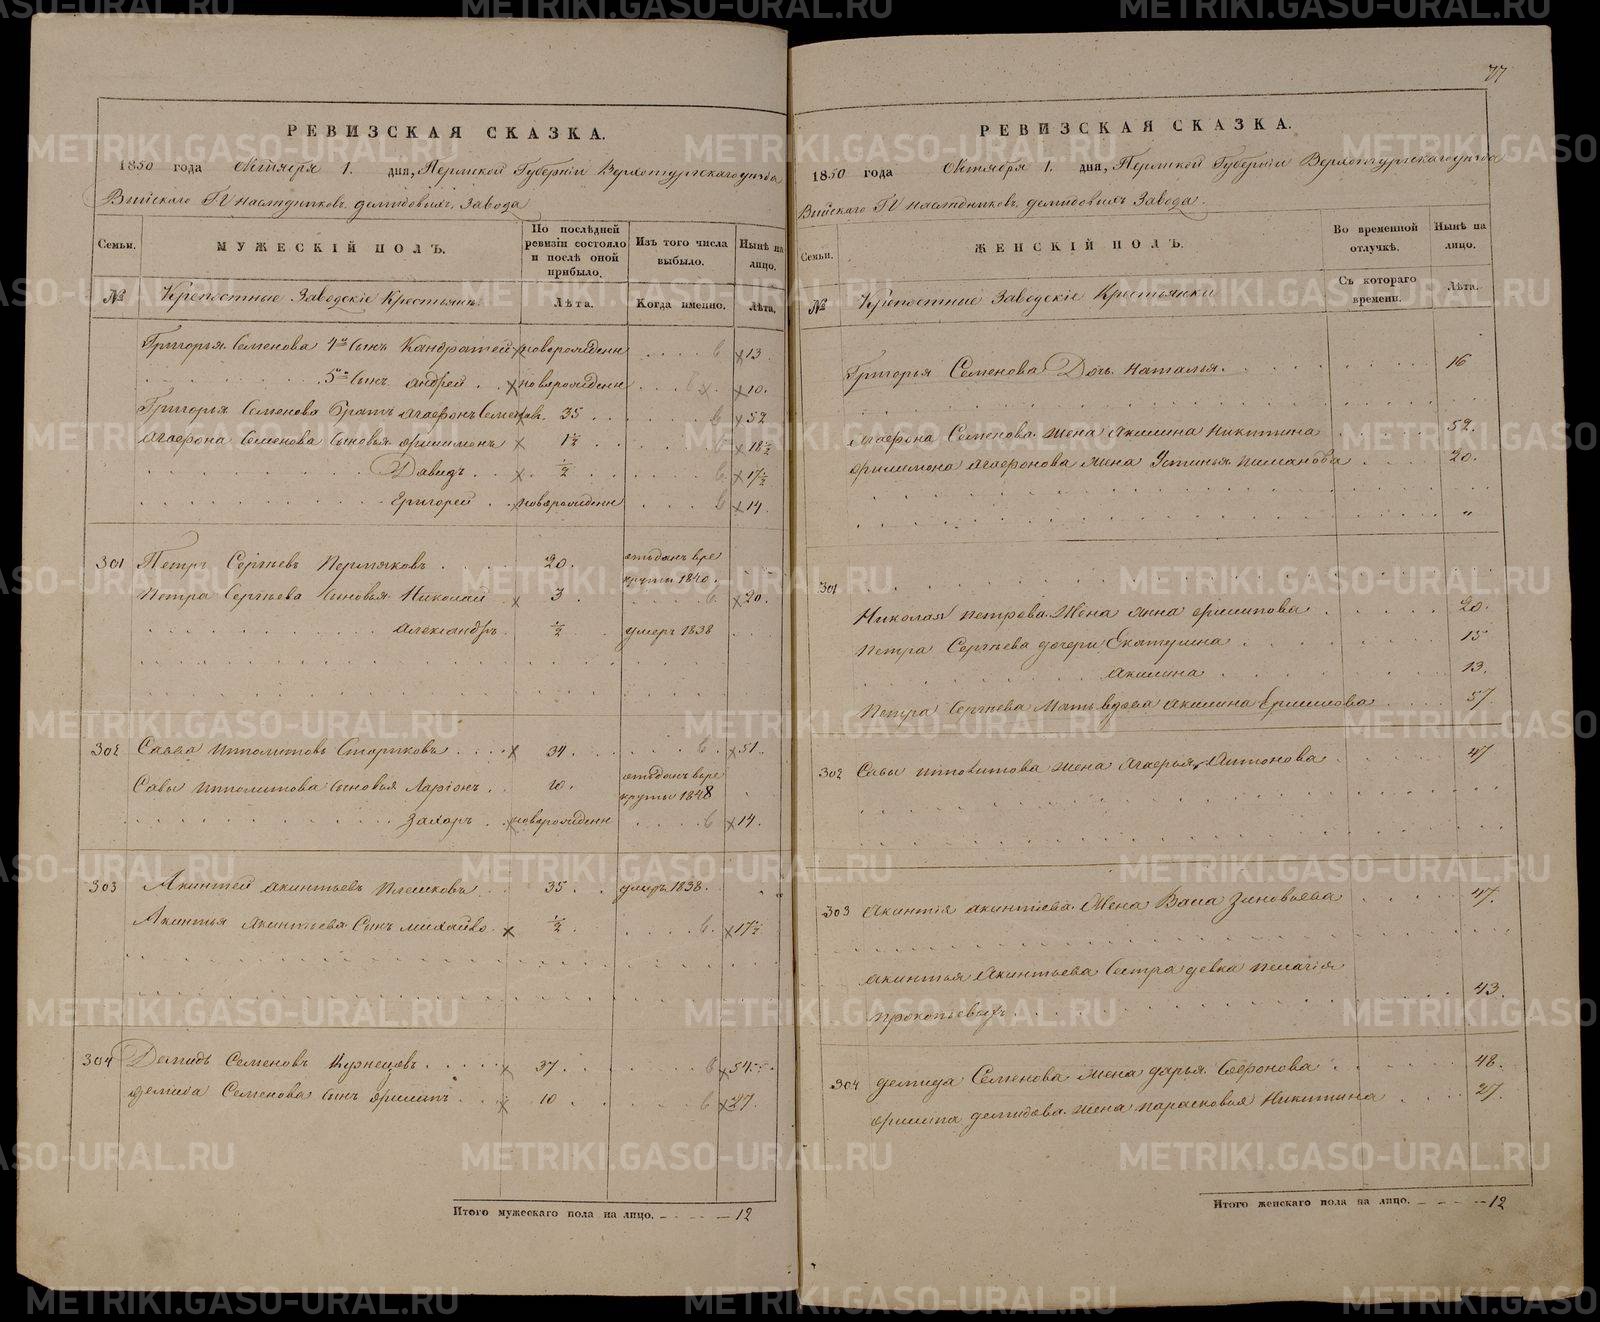 77
РЕВИЗСКАЯ СКАЗКА.
1850 года Октября 1. дня, Пермской Губерніи Верхотурскаго уѣзда
Выйскаго Гг наслѣдниковъ демидовыхъ Завода
Семьи.
МУЖЕСКІЙ ПОЛЪ.
По послѣдней ревизіи состояло и послѣ оной прибыло.
Изъ того числа выбыло.
Нынѣ на лицо.
№ Крепостные Заводскіе Крестьяне. Лѣта. Когда именно. Лѣта.
Григорья Семенова 4й Сынъ Кандратей новорожденн 13
5й Сынъ андрей новорожденн 10.
Григорья Семенова братъ Агафонъ Семеновъ 35 52
Агафона Семенова Сыновья Филимонъ 1½ 18½
Давидъ ½ 17½
Григорей новорожденн 14.
301 Петръ Сергѣевъ Пермяковъ 20. отъданъ въ ре
круты 1840.
Петра Сергѣева Сыновья Николай 3 20.
Александръ ½ умеръ 1838
302 Савва Ипполитовъ Стариковъ 34 51.
Савы Ипполитова Сыновья Ларіонъ 10. отъданъ въ ре
круты 1848
Захаръ новорожденн 14.
303 Акинтей акинтьевъ Плешковъ 35. умеръ 1838.
Акинтья Акинтьева Сынъ михайло ½ 17½
304 Демидъ Семеновъ Кузнецовъ 37. 54
демида Семенова Сынъ Филипъ 10 27.
Итого мужескаго пола на лицо. 12
РЕВИЗСКАЯ СКАЗКА.
1850 года Октября 1. дня, Пермской Губерніи Верхотурскаго уѣзда
Выйскаго Гг наслѣдниковъ демидовыхъ Завода.
Семьи.
ЖЕНСКІЙ ПОЛЪ.
Во временной отлучкѣ.
Нынѣ на лицо.
№ Крепостные Заводскіе Крестьянки Съ котораго времени. Лѣта.
Григорья Семенова Дочь Наталья. 16
Агафона Семенова жена Акилина Никитина 52.
Филимона Агафонова жена Устинья 20.
301
Николая Петрова Жена Анна Филипова 20.
Петра Сергѣева дочери Екатерина 15
Акилина 13.
Петра Сергѣева Мать вдова Акилина 57
302 Савы Ипполитова жена Агафья Антонова 47
303 Акинтія акинтіева Жена Васа Зиновьева 47.
акинтья Акинтьева Сестра девка Пелагія
Прокопьевыхъ 43.
304 демида Семенова жена дарья Софронова 48.
Филипа демидова жена Парасковья Никитина 27.
Итого женскаго пола на лицо. 12
METRIKI.GASO-URAL.RU